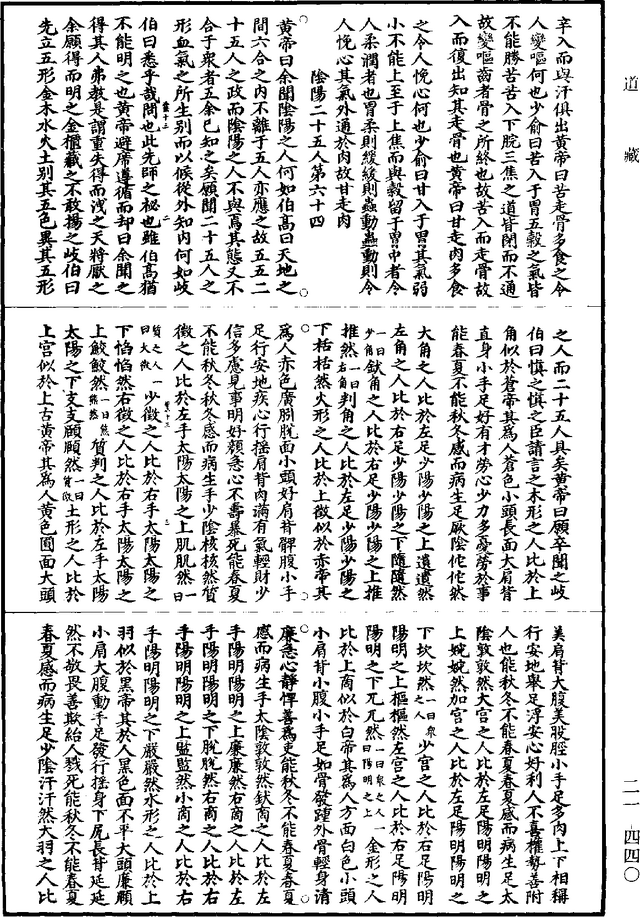 辛入而與汗俱出黃帝曰苦走骨多食之令
人變嘔何也少俞曰苦入于胃五穀之氣皆
不能勝苦苦入下脘三焦之道皆閉而不通
故變嘔齒者骨之所終也故苦入而走骨故
入而復出知其走骨也黃帝曰甘走肉多食
之令人悗心何也少俞曰甘入于胃其氣弱
小不能上至于上焦而與穀留于胃中者令
人柔潤者也胃柔則緩緩則蟲動蟲動則令
人悗心其氣外通於肉故甘走肉
陰陽二十五人第六十四
黃帝曰余聞陰陽之人何如伯高曰天地之
間六合之內不離于五人亦應之故五五二
十五人之政而陰陽之人不與焉其態又不
合于衆者五余已知之矣願聞二十五人之
形血氣之所生别而以候從外知內何如岐
伯曰悉乎哉問也此先師之祕也雖伯高猶
不能明之也黃帝避席遵循而却曰余聞之
得其人弗教是謂重失得而洩之天將厭之
余願得而明之金櫃藏之不敢揚之岐伯曰
先立五形金木水火土别其五色異其五形
之人而二十五人具矣黃帝曰願卒聞之岐
伯曰慎之慎之臣請言之木形之人比於上
角似於蒼帝其爲人蒼色小頭長面大肩背
直身小手足好有才勞心少力多憂勞於事
能春夏不能秋冬感而病生足厥陰佗佗然
大角之人比於左足少陽少陽之上遺遺然
左角之人比於右足少陽少陽之下隨隨然
一曰少角釱角之人比於右足少陽少陽之上推
推然一曰右角判角之人比於左足少陽少陽之
下栝栝然火形之人比於上徵似於赤帝其
爲人赤色廣脫面小頭好肩背髀腹小手
足行安地疾心行搖肩背肉滿有氣輕財少
信多慮見事明好顏急心不壽暴死能春夏
不能秋冬秋冬感而病生手少陰核核然質
徵之人比於左手太陽太陽之上肌肌然一曰
質之人一曰大徵少徵之人比於右手太陽太陽之
下慆慆然右徵之人比於右手太陽太陽之
上鮫鮫然一曰熊熊然質判之人比於左手太陽
太陽之下支支頤頤然一曰質徵土形之人比於
上宮似於上古黃帝其爲人黃色圓面大頭
美肩背大腹美股脛小手足多肉上下相稱
行安地舉足浮安心好利人不喜權勢善附
人也能秋冬不能春夏春夏感而病生足太
陰敦敦然大宮之人比於左足陽明陽明之
上婉婉然加宮之人比於左足陽明陽明之
下坎坎然一曰衆之人少宮之人比於右足陽明
陽明之上樞樞然左宮之人比於右足陽明
陽明之下兀兀然一曰衆之人一曰陽明之上金形之人
比於上商似於白帝其爲人方面白色小頭
小肩背小腹小手足如骨發踵外骨輕身清
廉急心靜悍善爲吏能秋冬不能春夏春夏
感而病生手太陰敦敦然釱商之人比於左
手陽明陽明之上廉廉然右商之人比於左
手陽明陽明之下脫脫然右商之人比於右
手陽明陽明之上監監然小商之人比於右
手陽明陽明之下嚴嚴然水形之人比於上
羽似於黑帝其於人黑色面不平大頭廉頤
小肩大腹動手足發行搖身下尻長背延延
然不敬畏善欺紿人戮死能秋冬不能春夏
春夏感而病生足少陰汗汗然大羽之人比
道藏
二一·四四〇